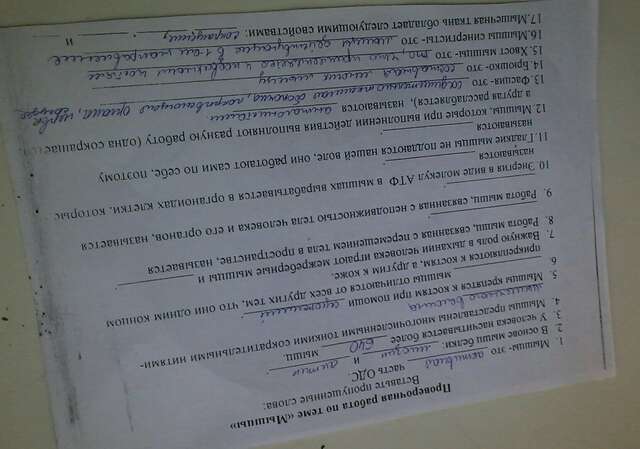 Проверочная работа по теме «Мышцы»
Вставьте пропущенные слова:
1. Мышцы- это активная часть ОДС.
2. В основе мыши белки: миозин и актин.
3. У человека насчитывается более 640 мышц.
4. Мышцы представлены многочисленными тонкими сократительными нитями-
мышечного волокна
5. Мышцы крепятся к костям при помощи сухожилий.
6. мышцы отличаются от всех других тем, что они одним концом
прикрепляются к костям, а другим к коже.
7. Важную роль в дыхании человека играют межреберные мышцы и
8. Работа мышц, связанная с перемещением тела в пространстве, называется
9. Работа мышц, связанная с неподвижностью тела человека и его органов, называется
10. Энергия в виде молекул АТФ в мышцах вырабатывается в органоидах клетки, которые
называются
11. Гладкие мышцы не поддаются нашей воле, они работают сами по себе, поэтому
называются
12. Мышцы, которые при выполнении действия выполняют разную работу (одна сокращается,
а другая расслабляется), называются антагонистами.
13. Фасция- это соединительнотканная оболочка, покрывающая органы,
14. Брюшко- это
15. Хвост мышцы- это
16. Мышцы синергисты- это мышцы действующие в 1-ом направлении
17. Мышечная ткань обладает следующими свойствами: и